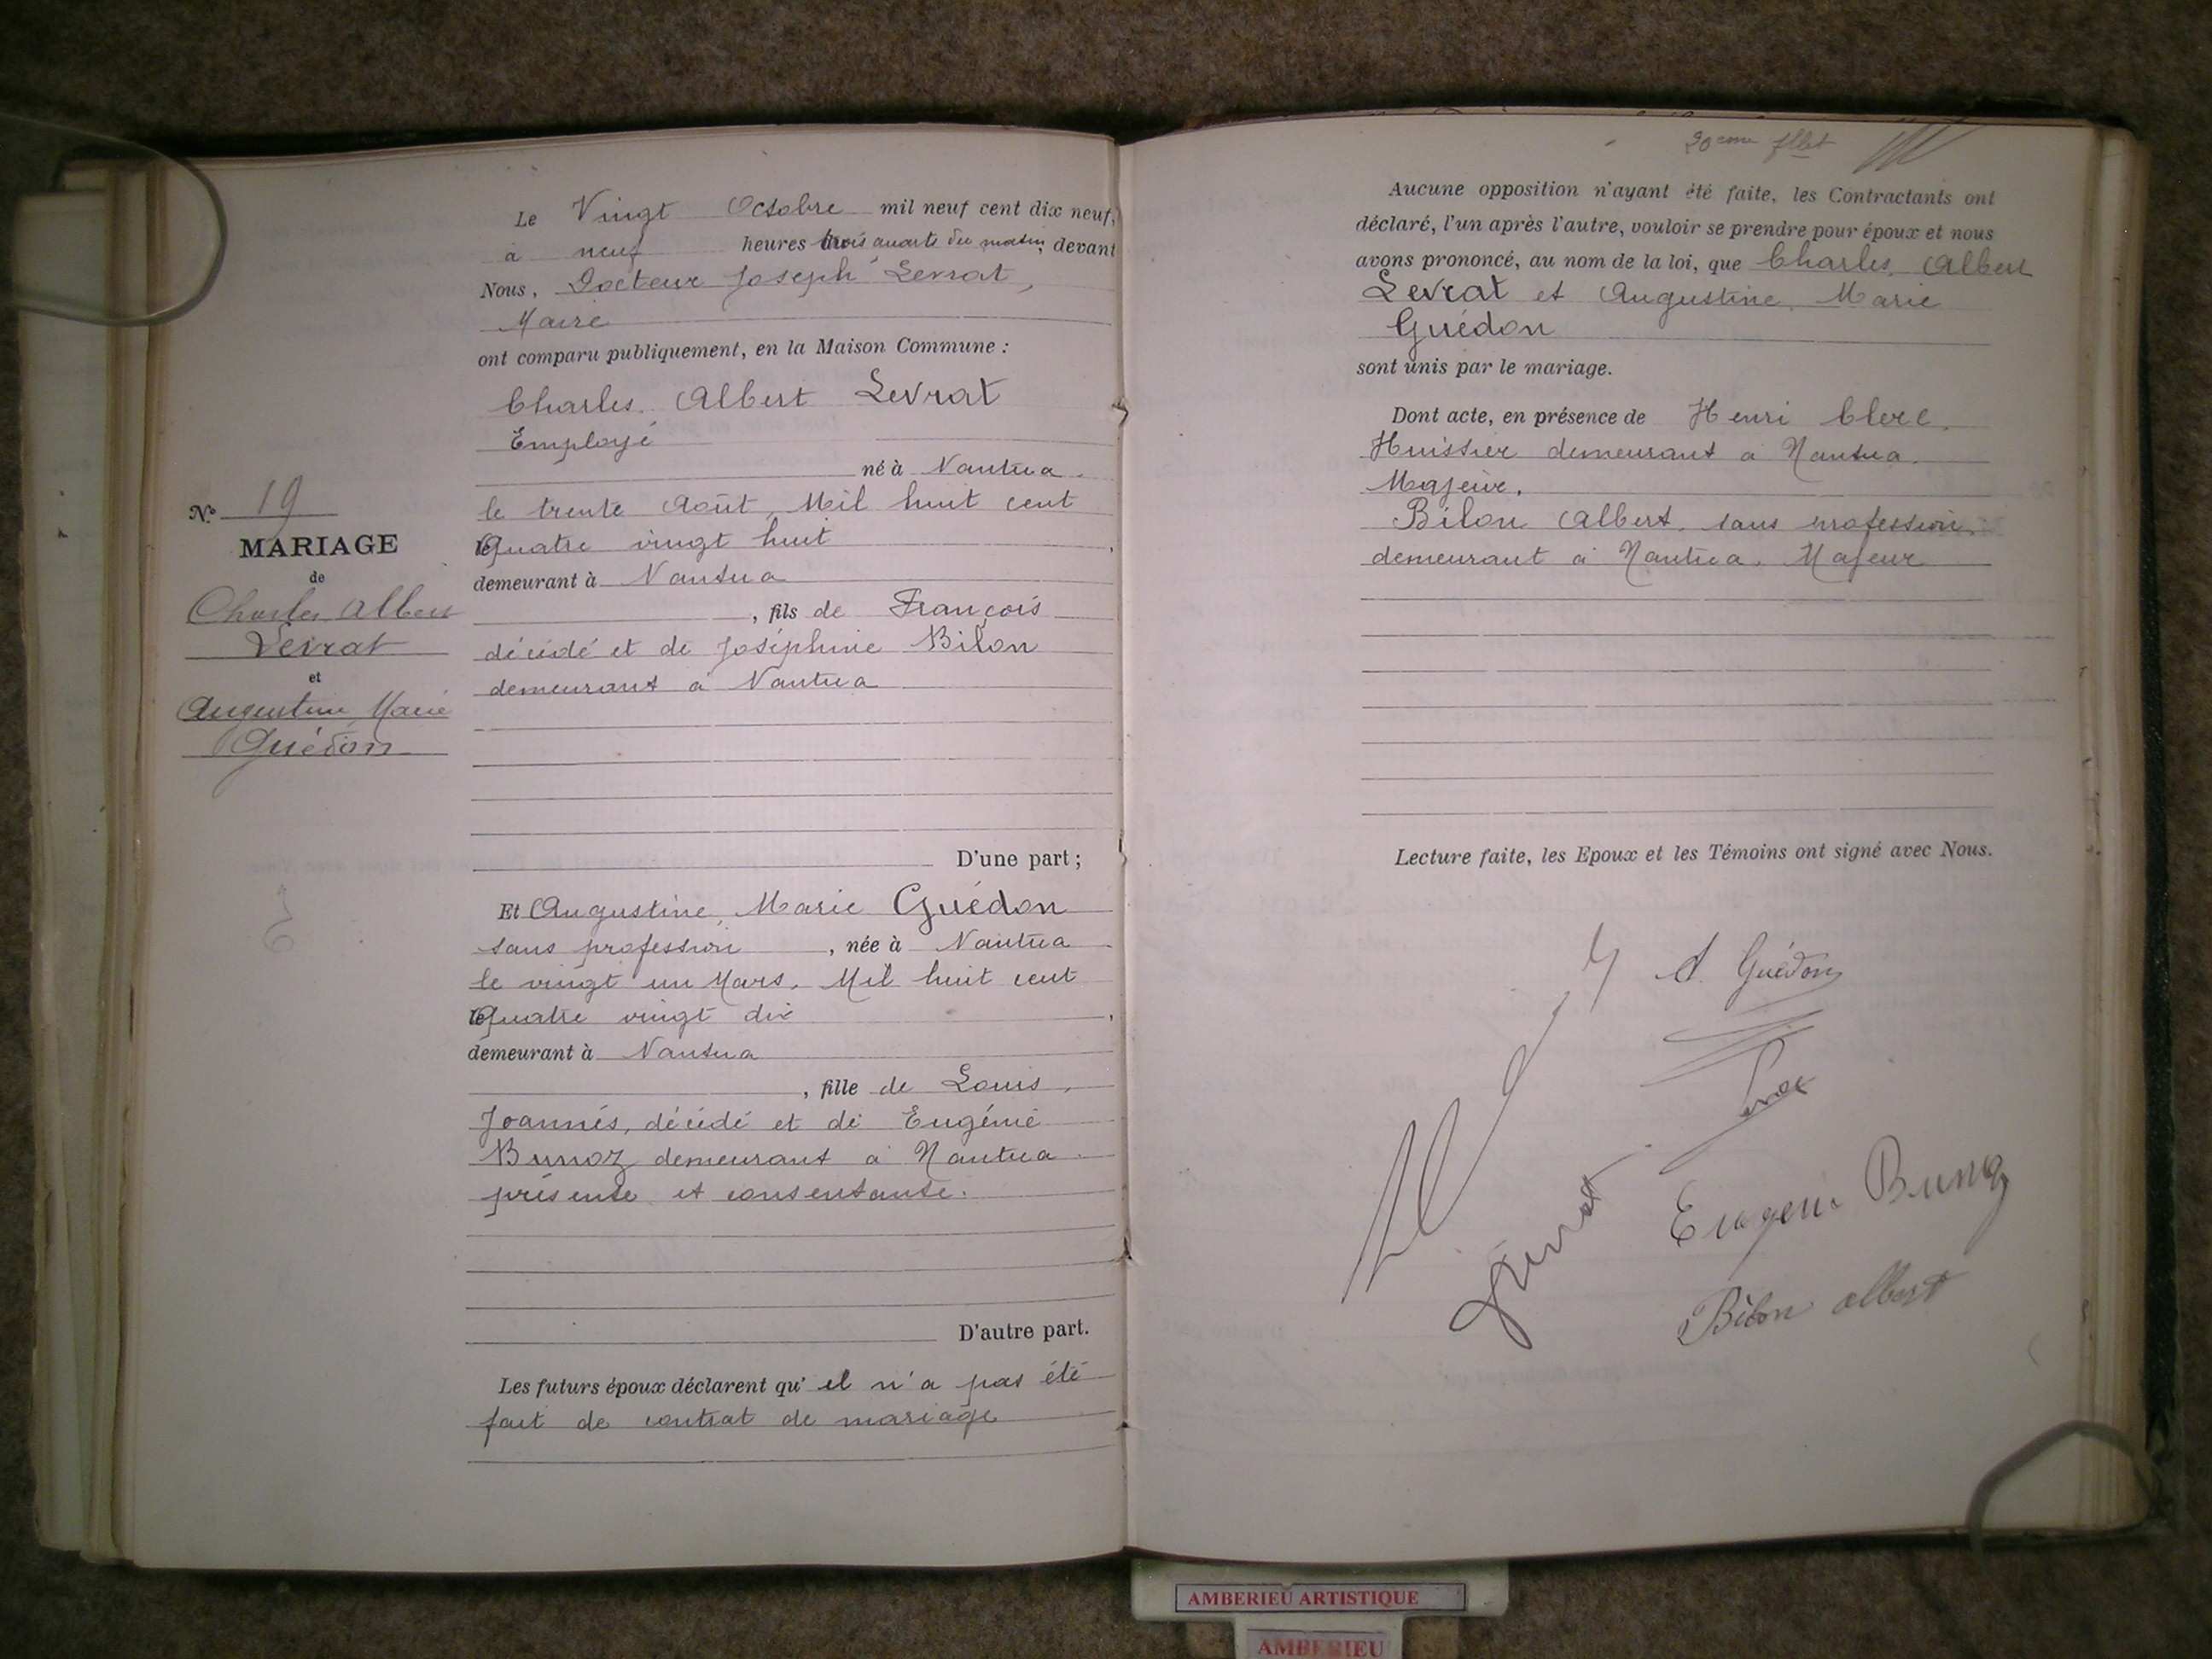 Le Vingt Octobre mil neuf cent dix neuf,
à neuf heures trois quarts du matin, devant
Nous, Docteur Joseph Levrat,
Maire
ont comparu publiquement, en la Maison Commune :
Charles, Albert Levrat
Employé
né à Nantua
le trente Août, Mil huit cent
Quatre vingt huit
demeurant à Nantua
, fils de François
décédé et de Joséphine Bilon
demeurant à Nantua
D'une part ;
Et Augustine, Marie Guédon
sans profession, née à Nantua
le vingt un Mars, Mil huit cent
Quatre vingt dix,
demeurant à Nantua
, fille de Louis,
Joannès, décédé et de Eugénie
Bunoz demeurant à Nantua
présente et consentante.
D'autre part.
Les futurs époux déclarent qu'il n'a pas été
fait de contrat de mariage
N° 19
MARIAGE
de
Charles Albert
Levrat
et
Augustine Marie
Guédon
Aucune opposition n'ayant été faite, les Contractants ont
déclaré, l'un après l'autre, vouloir se prendre pour époux et nous
avons prononcé, au nom de la loi, que Charles, Albert
Levrat et Augustine, Marie
Guédon
sont unis par le mariage.
Dont acte, en présence de Henri Clerc,
Huissier demeurant à Nantua.
Majeur.
Bilon Albert, sans profession,
demeurant à Nantua. Majeur
Lecture faite, les Epoux et les Témoins ont signé avec Nous.
A. Guédon
Eugénie Bunoz
Bilon albert
AMBERIEU ARTISTIQUE
AMBERIEU